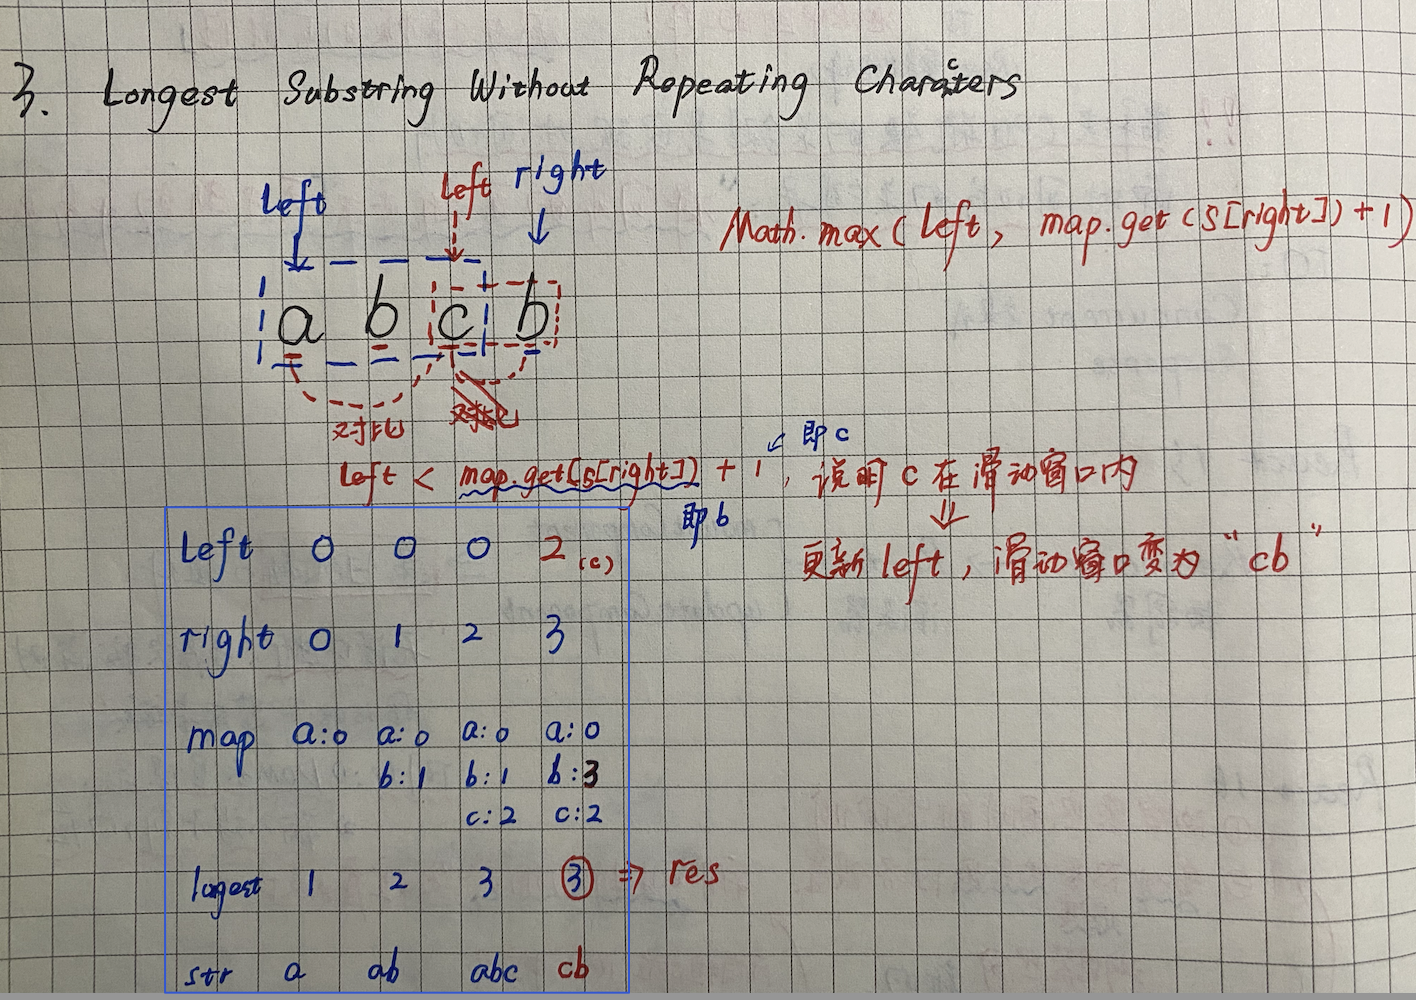 3. Longest Substring Without Repeating Characters
left left right
Math.max(left, map.get(s[right])+1)
a b c b
对比 对比
即c
left < map.get(s[right]) + 1, 说明c在滑动窗口内
即b
⇓
更新left, 滑动窗口变为 "cb"
left 0 0 0 2 (c)
right 0 1 2 3
map a:0 a:0 a:0 a:0
b:1 b:1 b:3
c:2 c:2
logest 1 2 3 3 => res
str a ab abc cb